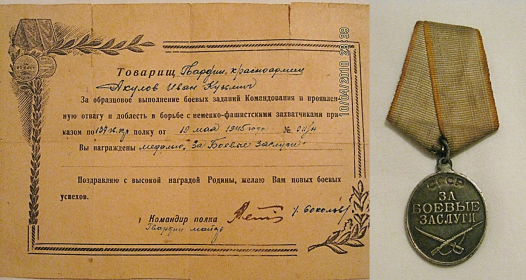 Товарищ Гвардии красноармеец
Акулов Иван Кузьмич
За образцовое выполнение боевых заданий Командования и проявлен-
ную отвагу и доблесть в борьбе с немецко-фашистскими захватчиками при-
казом по полку от 19 мая 1945 года №
Вы награждены медалью „За Боевые заслуги".
Поздравляю с высокой наградой Родины, желаю Вам новых боевых
успехов.
Командир полка
Гвардии майор
/Соколов/
10/04/2010
СССР
ЗА
БОЕВЫЕ
ЗАСЛУГИ